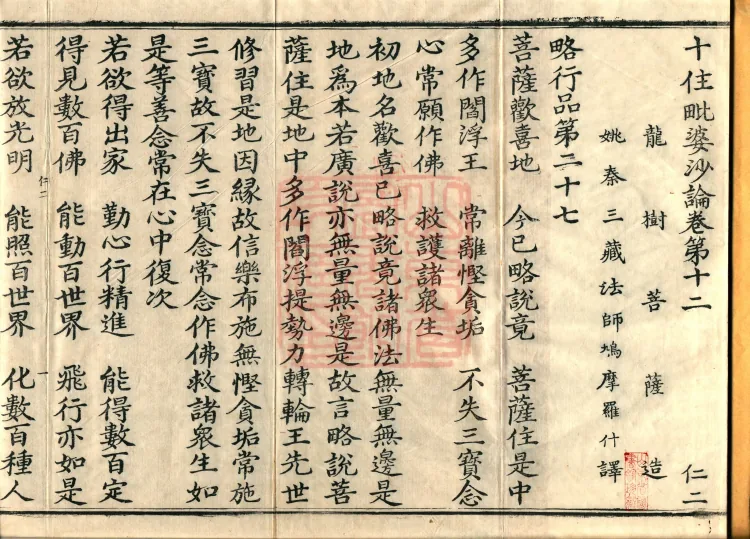 十住毗婆沙論卷第十二 仁二
龍樹菩薩造
姚秦三藏法師鳩摩羅什譯
略行品第二十七
菩薩歡喜地 今已略說竟 菩薩住是中
多作閻浮王 常離慳貪垢 不失三寶念
心常願作佛 救護諸衆生
初地名歡喜已略說竟諸佛法無量無邊是
地爲本若廣說亦無量無邊是故言略說菩
薩住是地中多作閻浮提勢力轉輪王先世
修習是地因緣故信樂布施無慳貪垢常施
三寶故不失三寶念常念作佛救諸衆生如
是等善念常在心中復次
若欲得出家 勤心行精進 能得數百定
得見數百佛 能動百世界 飛行亦如是
仁二 一
若欲放光明 能照百世界 化數百種人